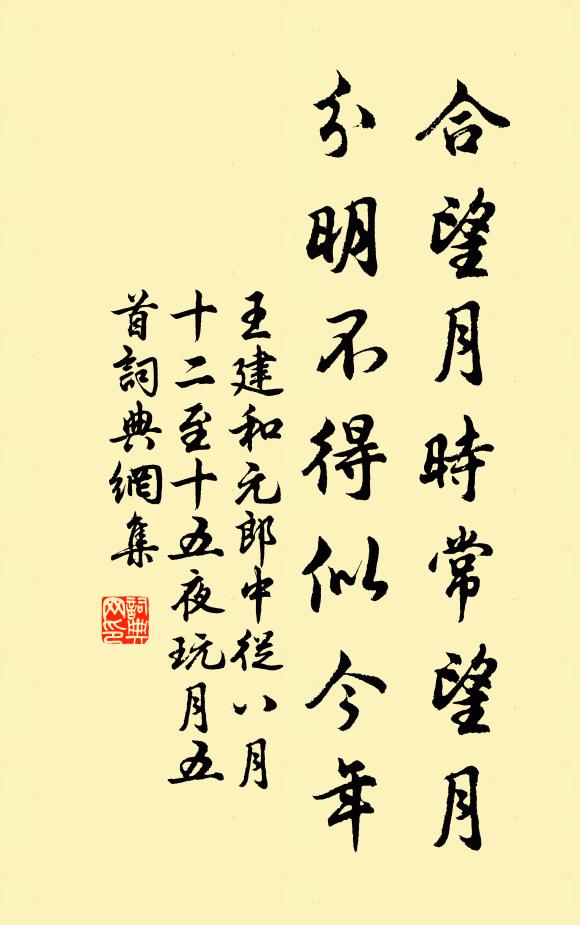 合望月時常望月
分明不得似今年
王建和元郎中從八月
十二至十五夜玩月五
首詞典網集
詞典
网印